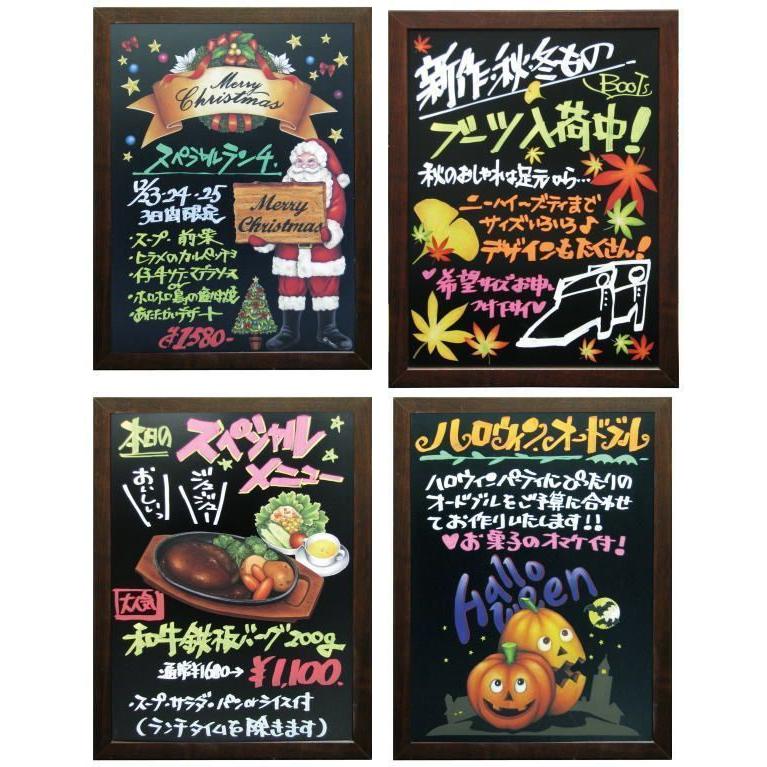 Merry
Christmas
スペシャルランチ
12/23・24・25
3日間限定
Merry
Christmas
・スープ・前菜
・ヒラメのカルパッチョ
・仔牛ソテーマデラソース
or
・ホロホロ鳥の
・あたたかいデザート
¥1580-
新作・秋・冬もの
Boots
ブーツ入荷中!
秋のおしゃれは足元から…
ニーハイ〜ブーティまで
サイズいろいろ♪
デザインもたくさん!
♥希望サイズお申し
つけ下サイ♥
本日の
スペシャル
メニュー
おいしいっ
ジュージュー
大人気
和牛鉄板バーグ200g
通常¥1680→¥1,100.
・スープ・サラダ・パンorライス付
(ランチタイムを除きます)
ハロウィン・オードブル
ハロウィンパーティにぴったりの
オードブルをご予算に合わせ
てお作りいたします!!
♥お菓子のオマケ付!
Hallo
ween